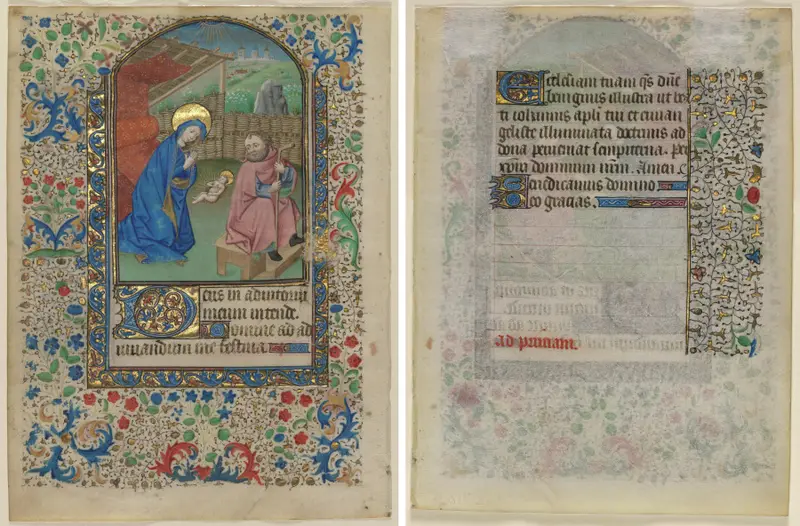 Deus in adiutoriu
meum intende.
Domine ad ad
iuuandum me festina.
Ecclesiam tuam qs dne
benignus illustra ut be
ti iohannis apli tui et euuan
geliste illuminata doctrinis ad
dona perueniat sempiterna. Per
xpm dominum nrm. Amen.
Benedicamus domino
Deo gracias.
ad primam.